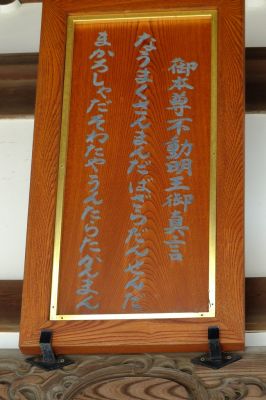 御本尊不動明王御真言
なうまくさんまんだばざらだんせんだ
まかろしゃだそわたやうんたらたかんまん